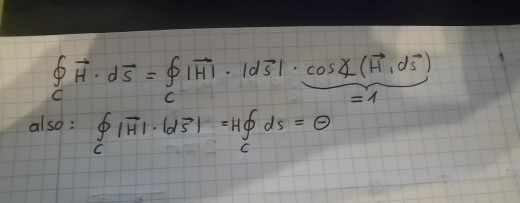 ∮_C H⃗ · ds⃗ = ∮_C |H⃗| · |ds⃗| · cos∡(H⃗, ds⃗)
= 1
also: ∮_C |H⃗| · |ds⃗| = H ∮_C ds = Θ